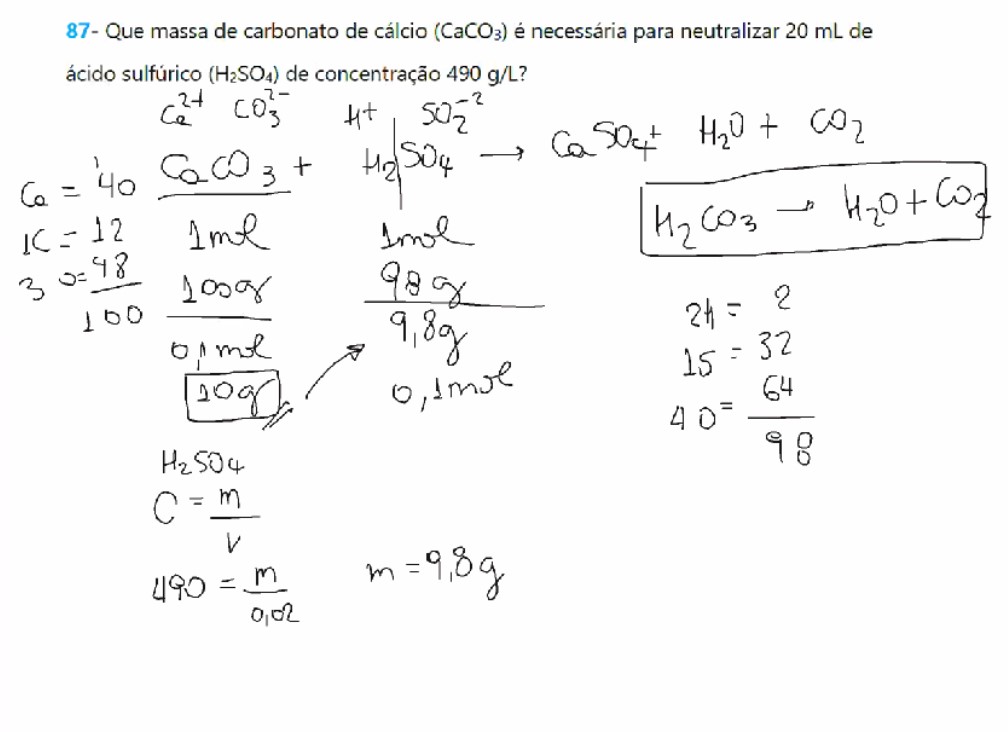 87- Que massa de carbonato de cálcio (CaCO₃) é necessária para neutralizar 20 mL de
ácido sulfúrico (H₂SO₄) de concentração 490 g/L?
Ca²⁺ CO₃²⁻ H⁺ SO₂⁻²
CaCO₃ + H₂|SO₄ → CaSO₄ + H₂O + CO₂
H₂CO₃ → H₂O + CO₂
Ca = 40
1C = 12
3 O = 48
100
1mol 1mol
100g 98g
0,1mol 9,8g
10g 0,1mol
2H = 2
1S = 32
4O = 64
98
H₂SO₄
C = m
V
490 = m
0,02
m = 9,8g